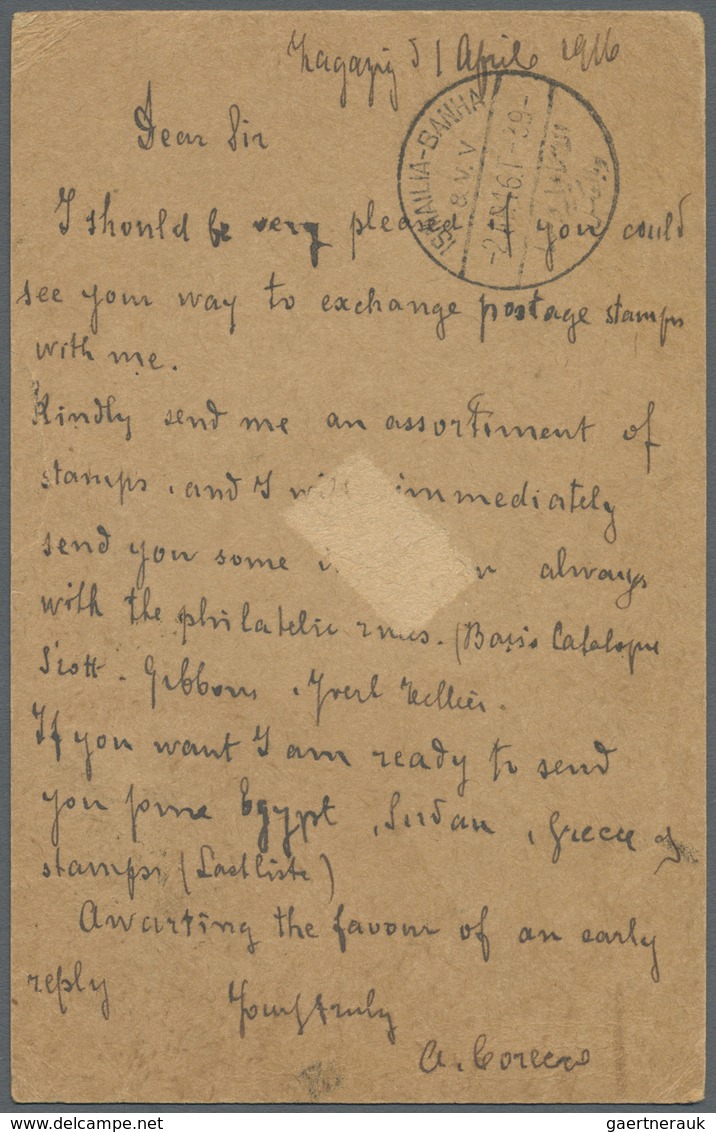 Zagazig 1 April 1916
Dear Sir
ISMAILIA-BANHA
8.V.V
I should be very pleased if you could
see your way to exchange postage stamps
with me.
Kindly send me an assortiment of
stamps, and I will immediately
send you some always
with the philatelic . (Basis Catalogue
Scott. Gibbons, Yvert Tellier.
If you want I am ready to send
you some Egypt, Sudan, Greece
stamps (
Awaiting the favour of an early
reply
Yours truly
A.
gaertnerauk